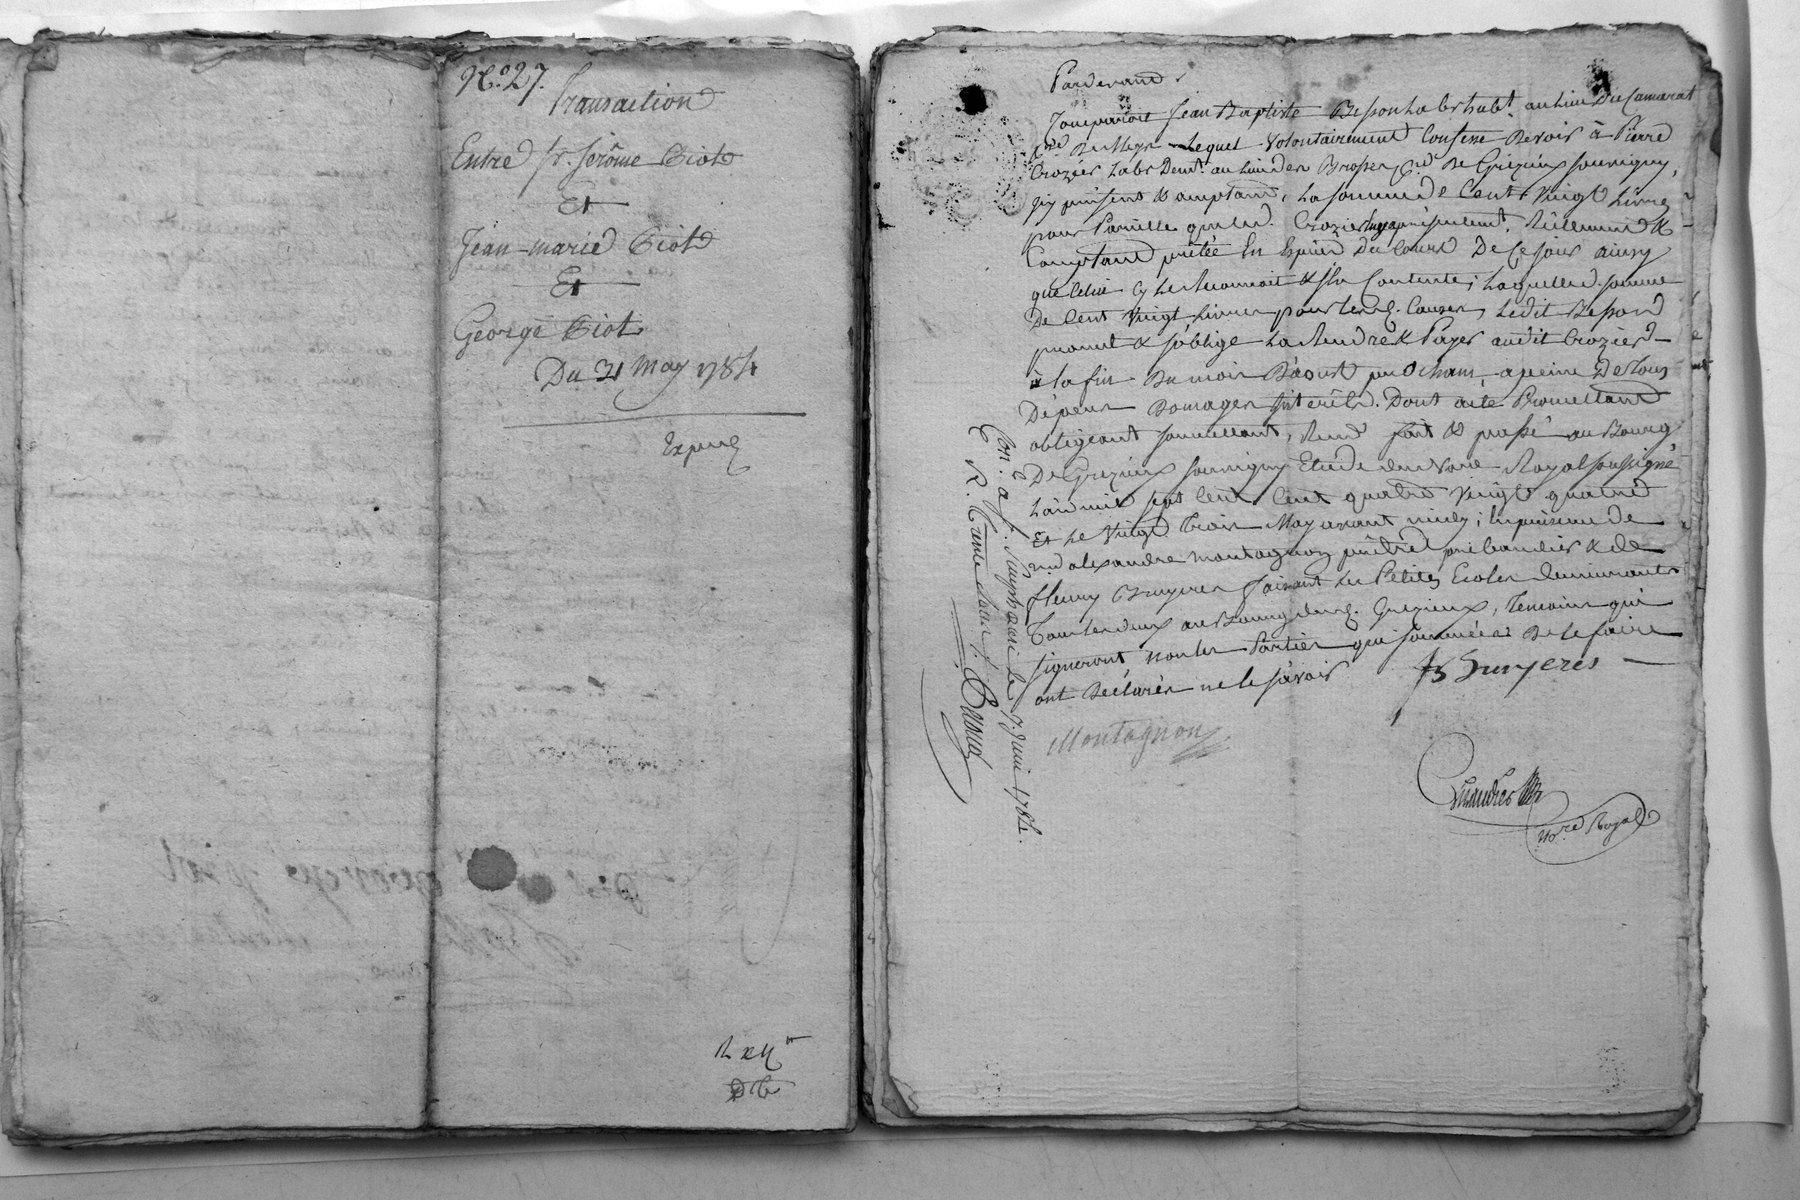 No. 27.
Transaction
Entre Sr. Jerôme Griot
Et
Jean-marie Griot
Et
George Griot
Du 31 May 1784
Expédié
Pardevant
Comparoit Jean Baptiste Besson Labr habt. au lieu Du Camarat
lequel Volontairement Confesse Devoir à Pierre
Crozier Labr Demt. au lieu des Brosses De Grezieux Souvigny,
icy présent & acceptant, la somme de Cent Vingt Livres
pour Pareille que led. Crozier luy a présentement, Réellement &
Comptant prêtée En Espèces Du Cours De Ce jour ainsy
que Celui cy le Reconnoit & s'en Contente; laquelle d. somme
De Cent Vingt Livres pour les d. Causes, ledit Besson
promet & s'oblige la Rendre & Payer audit Crozier
à la fin Du mois D'aoust prochain, a peine De tous
Dépens Domages Intérêts. Dont acte Promettant
obligeant soumettant, Renont fait & passé au Bourg
De Grezieux Souvigny Etude du Nore Royal soussigné
L'an mil sept Cent quatre Vingt quatre
Et le Vingt Trois May avant midy; En présence de
Mre alexandre Montagnon prêtre prébandier & de
fleury Bruyeres faisant les Petites Ecoles demeurants
Tous les deux au Bourg dud. Grezieux, Temoins qui
signeront non les Parties qui sommées De le faire
ont Déclarés ne le sçavoir
fs Bruyeres
Montagnon
nore Royal
Con. a St. Simphorien le 7 Juin 1784.
R. Trente sous